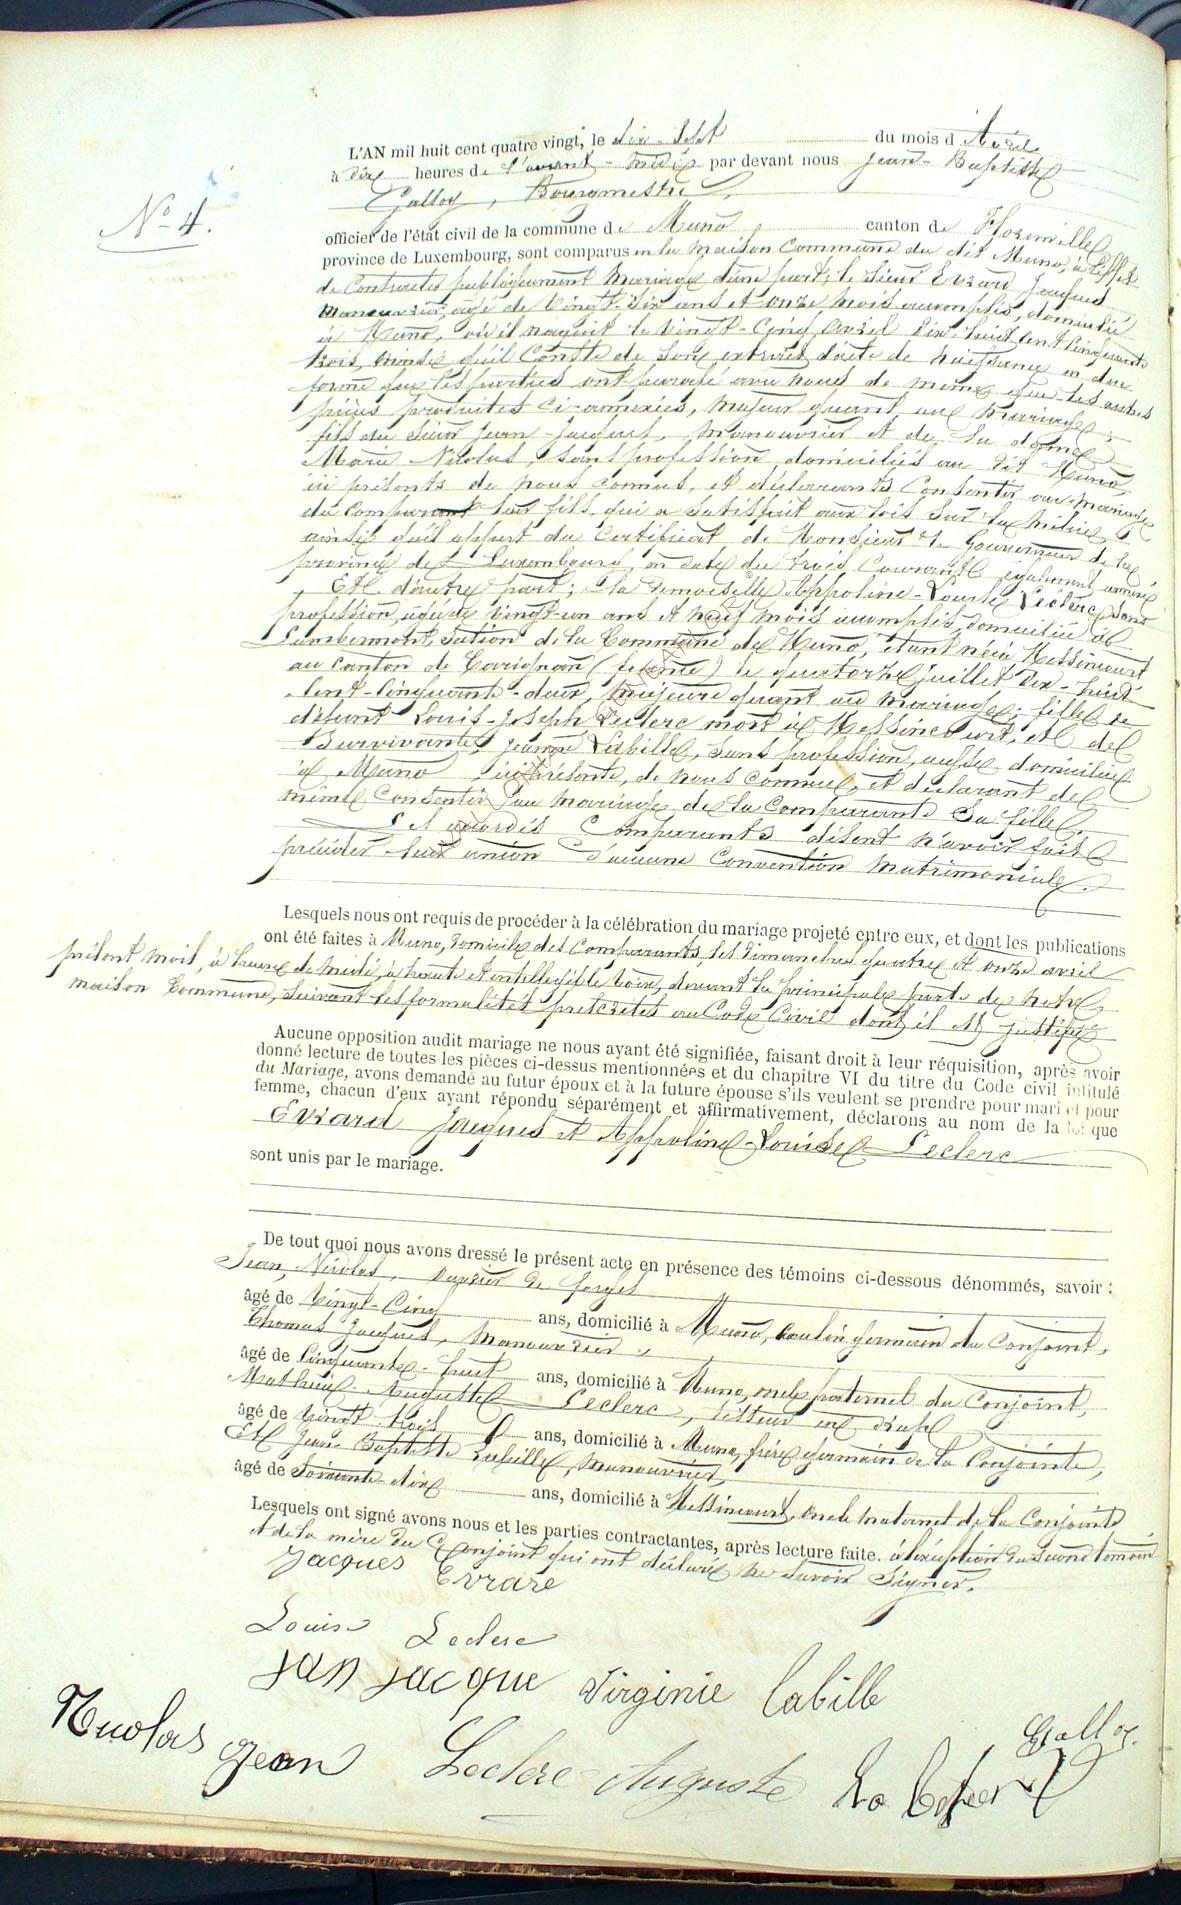 L'AN mil huit cent quatre vingt, le dix-sept du mois d'Avril
à dix heures de l'avant-midi par devant nous Jean-Baptiste
Galloy, Bourgmestre,
N° 4.
officier de l'état civil de la commune de Muno canton de Florenville
province de Luxembourg, sont comparus en la maison Commune du dit Muno, à l'effet
de Contracter publiquement Mariage d'une part; le Sieur Evrard Jacques
manouvrier, âgé de Vingt-Six ans et onze mois accomplis, domicilié
à Muno, où il naquit le Vingt-Cinq avril dix-huit cent Cinquante
trois, comme qu'il Conste de Son extrait d'acte de naissance en due
forme que les parties ont paraphé avec nous de même que les autres
pièces produites Ci-annexées, majeur quant au mariage;
fils du Sieur Jean-Jacques, Manouvrier et de la dame
Marie Nicolas, sans profession, domiciliés au dit Muno,
ici présents de nous connus, et déclarants Consentir au mariage
du Comparant leur fils, qui a satisfait aux lois sur la milice
ainsi qu'il appert du Certificat de Monsieur le Gouverneur de la
province de Luxembourg, en date du trois Courant également annexé,
Et d'autre part; la Demoiselle Appoline-Louise Leclerc, sans
profession, âgée de Vingt-un ans et neuf mois accomplis, domiciliée à
Lambermont, section de la Commune de Muno, étant née à Messincourt
au Canton de Carignan (france) le quatorze juillet Dix-huit
Cent-Cinquante-deux, majeure quant au mariage; fille de
défunt Louis-Joseph Leclerc mort à Messincourt, et de
Survivante Jeanne Labille, sans profession, aussi domiciliée
à Muno, ici présente, de nous Connue, et déclarant de
même Consentir au mariage de la Comparante Sa fille,
Les accordés Comparants disent n'avoir fait
précéder leur union d'aucune Convention Matrimoniale.
Lesquels nous ont requis de procéder à la célébration du mariage projeté entre eux, et dont les publications
ont été faites à Muno, domicile des Comparants, les Dimanches quatre et onze avril
présent mois, à l'heure de midi, à haute et intelligible Voix, devant la principale porte de notre
maison Commune, suivant les formalités prescrites au Code Civil dont il est justifié
Aucune opposition audit mariage ne nous ayant été signifiée, faisant droit à leur réquisition, après avoir
donné lecture de toutes les pièces ci-dessus mentionnées et du chapitre VI du titre du Code civil intitulé
du Mariage, avons demandé au futur époux et à la future épouse s'ils veulent se prendre pour mari et pour
femme, chacun d'eux ayant répondu séparément et affirmativement, déclarons au nom de la loi que
Evrard Jacques et Appoline-Louise Leclerc
sont unis par le mariage.
De tout quoi nous avons dressé le présent acte en présence des témoins ci-dessous dénommés, savoir :
Jean, Nicolas, ouvrier de forges
âgé de Vingt-Cinq ans, domicilié à Muno, Cousin germain du Conjoint,
Thomas Jacques, Manouvrier,
âgé de Cinquante-huit ans, domicilié à Muno, oncle paternel du Conjoint,
Mathieu-Auguste Leclerc, tisseur en drap
âgé de Vingt-trois ans, domicilié à Muno, frère germain de la Conjointe,
Et Jean Baptiste Labille, Manouvrier,
âgé de Soixante-dix ans, domicilié à Messincourt, oncle maternel de la Conjointe
Lesquels ont signé avons nous et les parties contractantes, après lecture faite. à l'exception du Second témoin
et de la mère du Conjoint qui ont déclaré ne Savoir Signer.
Jacques Evrare
Louise Leclerc
Jan Jacque Virginie labille
Nicolas Jean Leclerc Auguste
Galloy